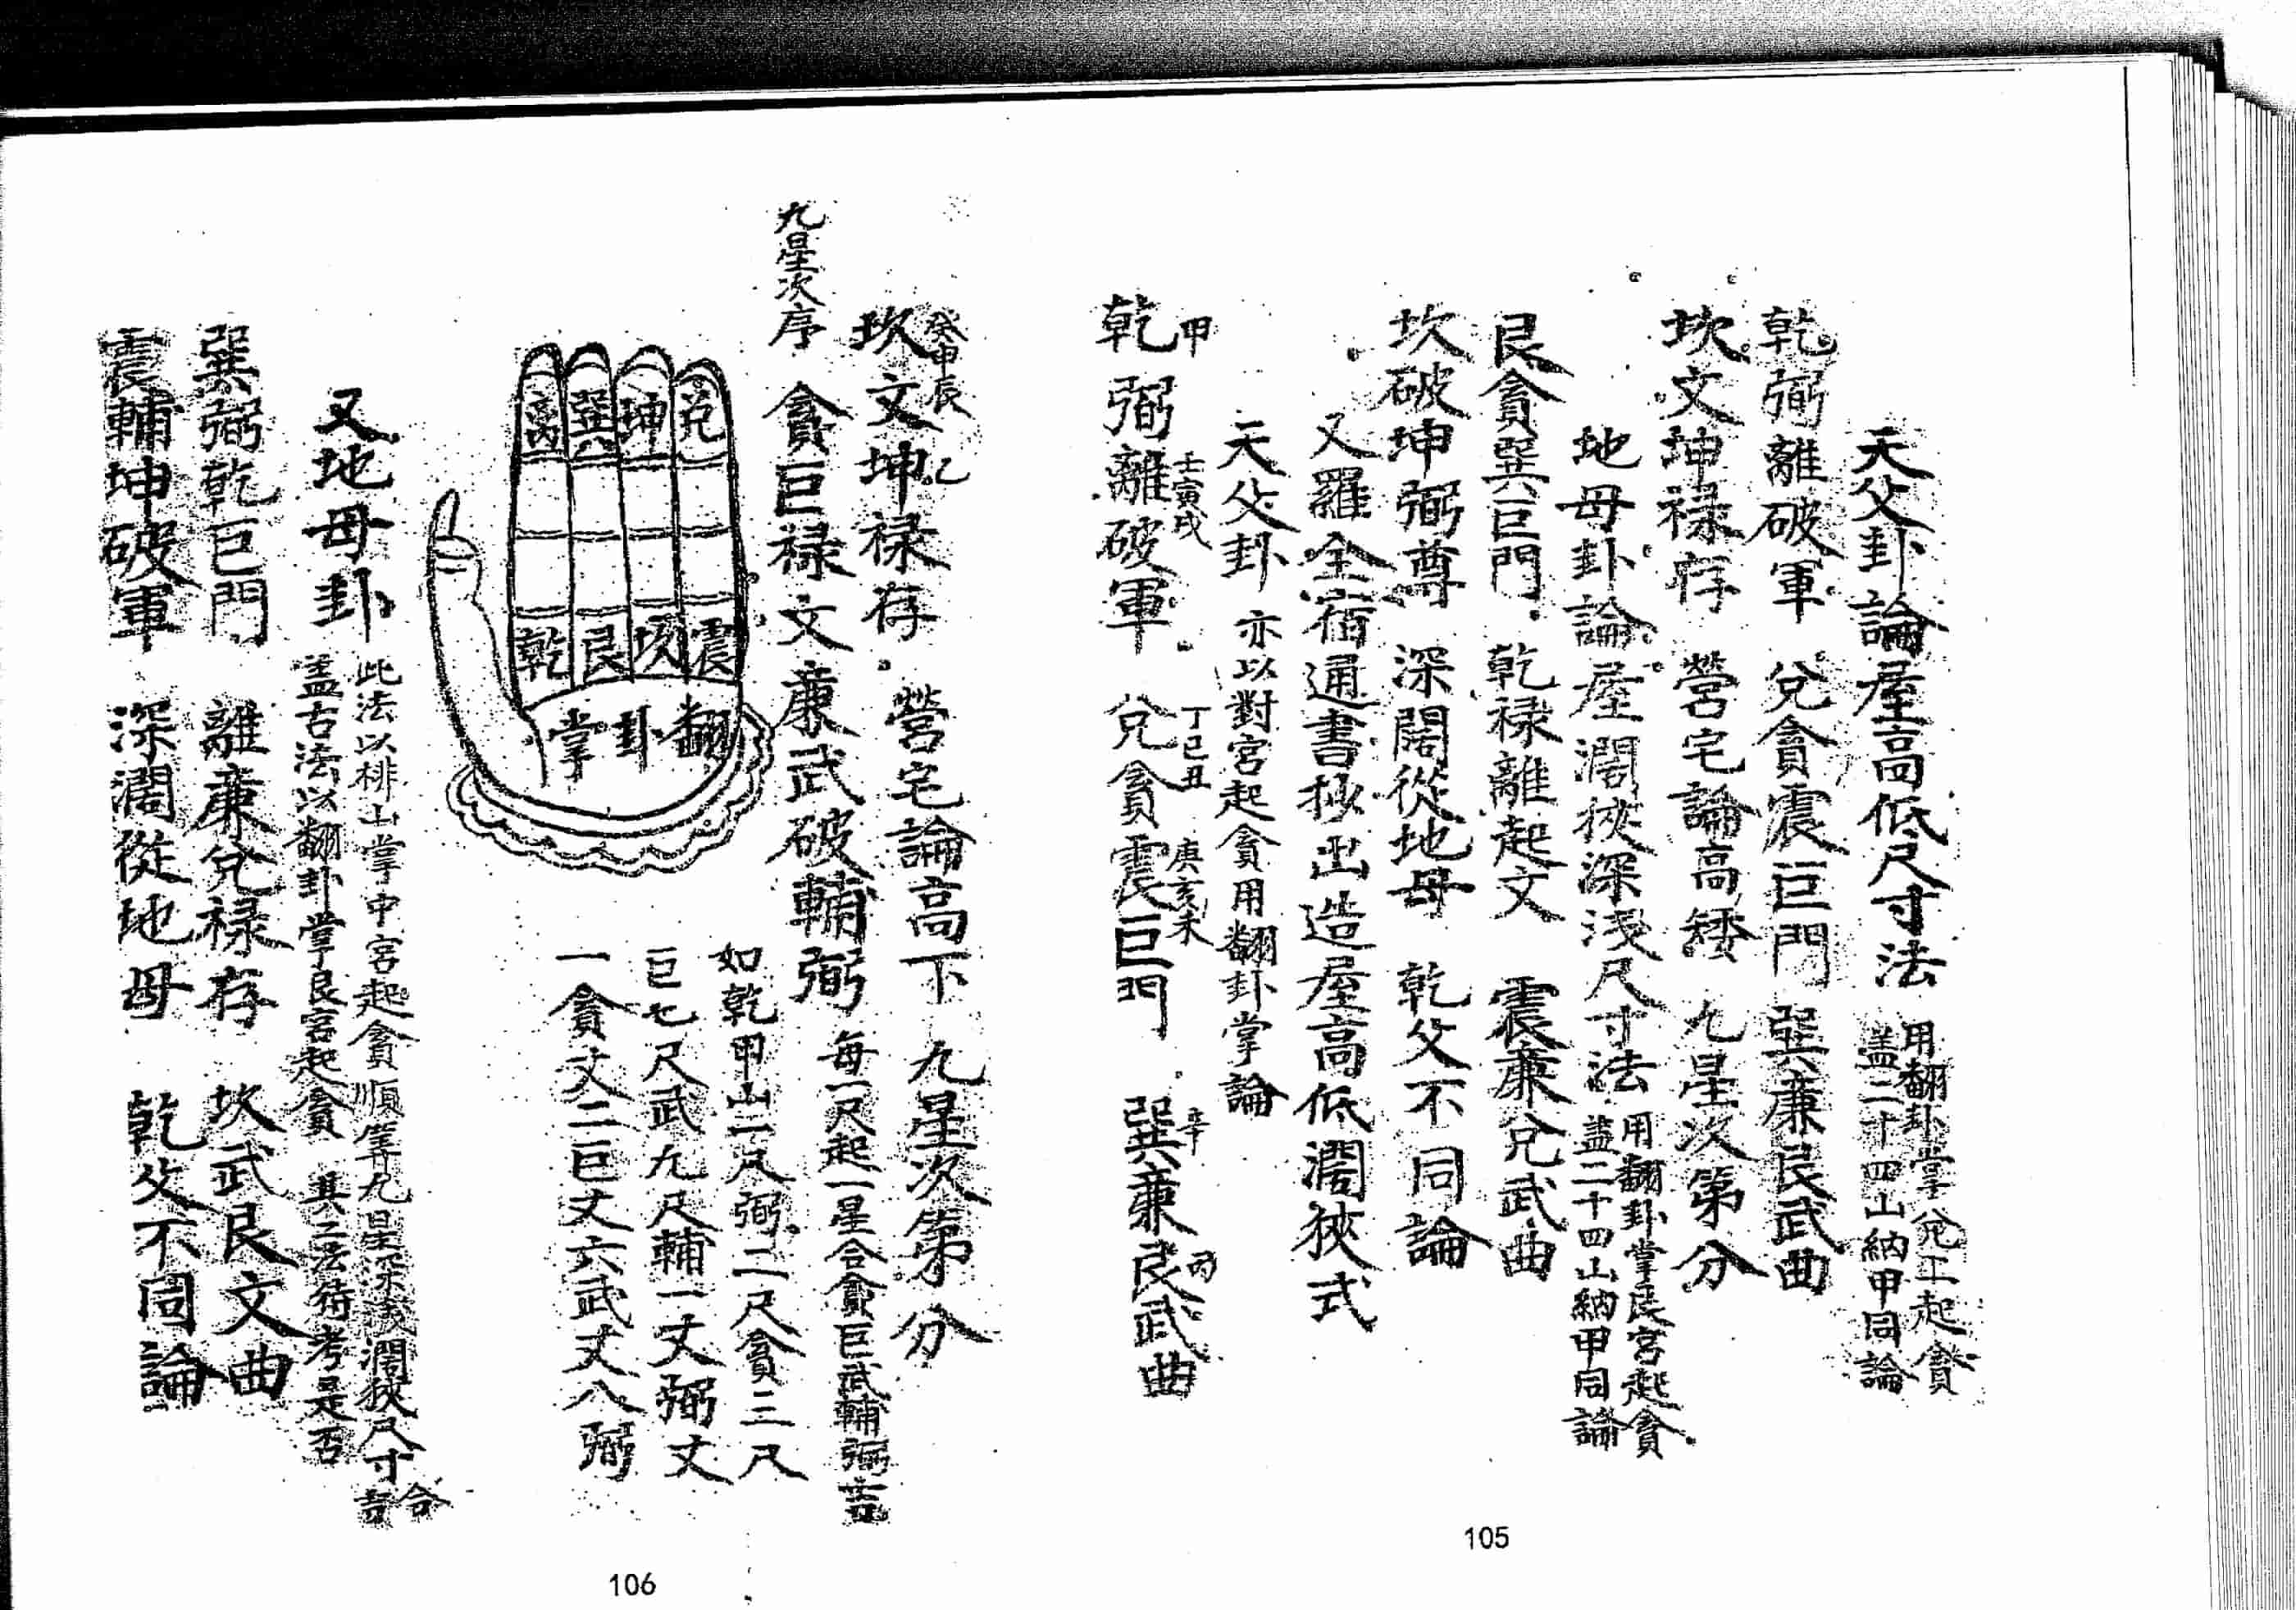 天父卦論屋高低尺寸法
用翻卦掌兌上起貪
盖二十四山納甲同論
乾弼離破軍 兌貪震巨門 巽廉艮武曲
坎文坤禄存 營宅論高矮 九星次第分
地母卦論屋濶狹深浅尺寸法
用翻卦掌艮宮起貪
盖二十四山納甲同論
艮貪巽巨門 乾禄離起文 震廉兌武曲
坎破坤弼尊 深闊從地母 乾父不同論
又羅全宿通書抄出造屋高低濶狹式
天父卦 亦以對宮起貪用翻卦掌論
甲 壬寅戌 丁巳丑 庚亥未 辛 丙
乾弼離破軍 兌貪震巨門 巽廉艮武曲
105
癸申辰 乙
坎文坤禄存 營宅論高下 九星次第分
九星次序 貪巨禄文廉武破輔弼 每一尺起一星合貪巨武輔弼吉
離 巽 坤 兌
乾 艮 坎 震
翻卦掌
如乾甲山一尺弼二尺貪三尺
巨七尺武九尺輔一丈弼丈
一貪丈二巨丈六武丈八弼
又地母卦
此法以排山掌中宮起貪順筭九星深浅濶狹尺寸合吉
盖古法以翻卦掌艮宮起貪 其二法待考是否
巽弼乾巨門 離廉兌禄存 坎武艮文曲
震輔坤破軍 深濶從地母 乾父不同論
106